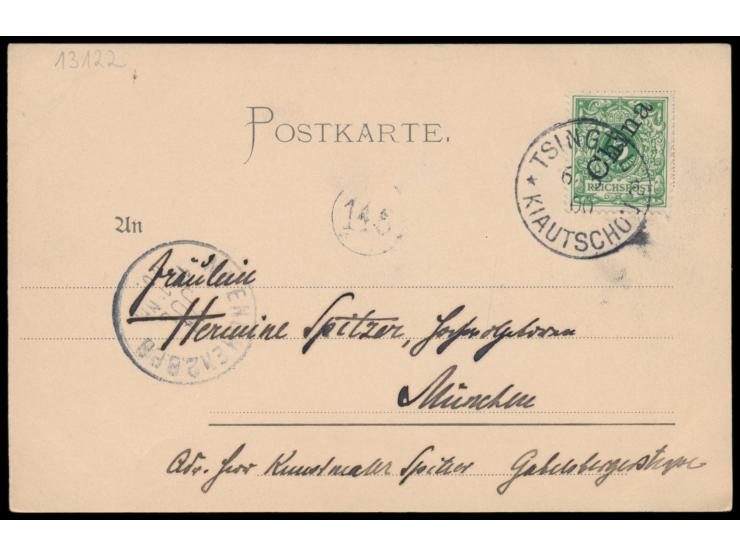 13122
POSTKARTE.
China
REICHSPOST
TSING
KIAUTSCHOU
An
Fräulein
Hermine Spitzer, Hochwolgeboren
München
Adr. Herr Kunstmaler Spitzer Gabelsbergerstrasse